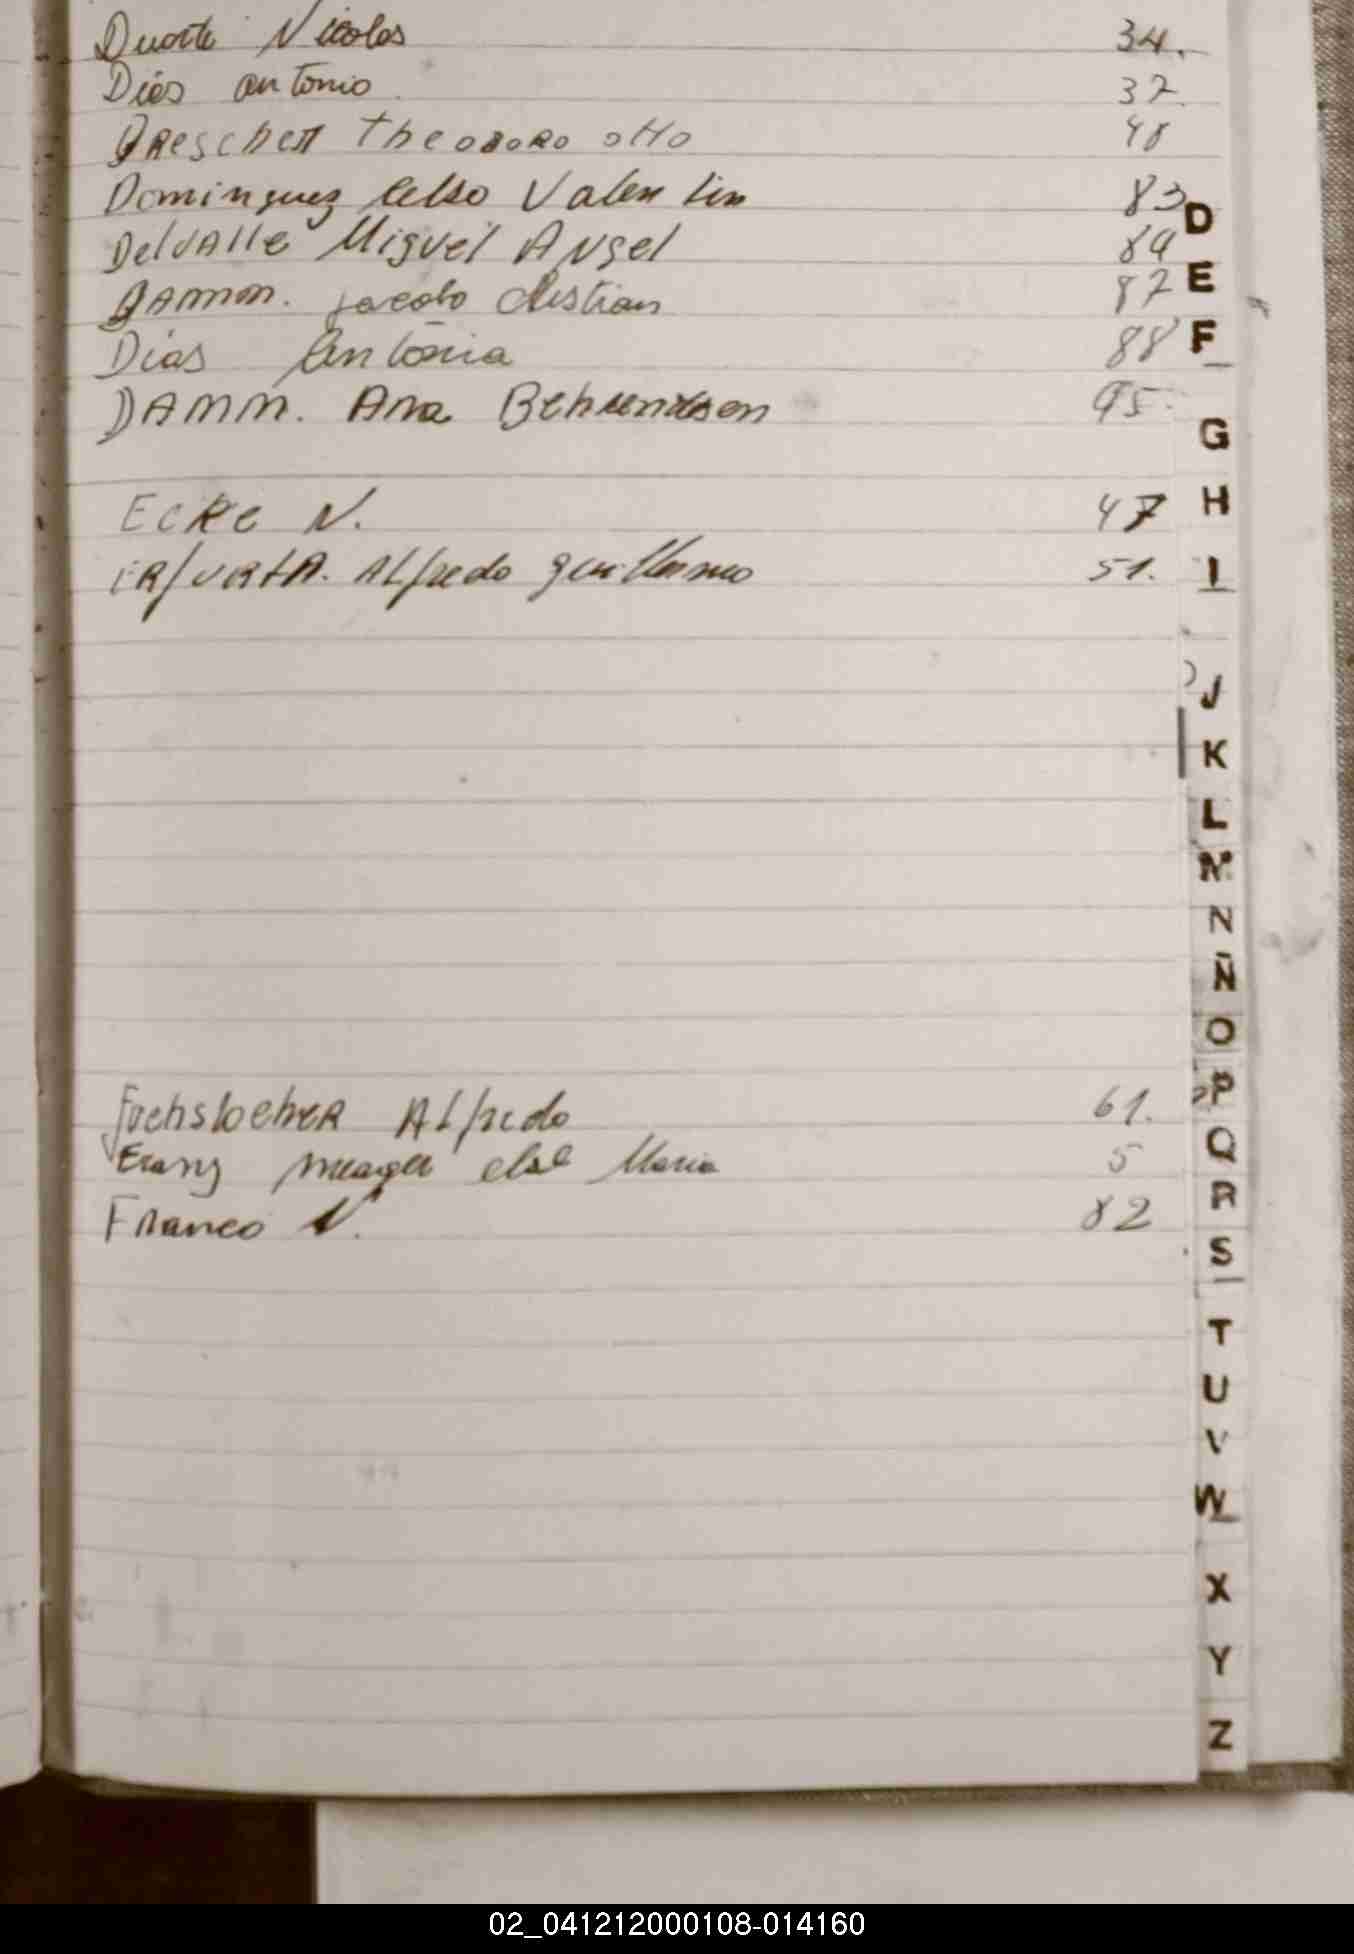 Duarte Nicolas 34.
Dias antonio 37.
DRescheR TheodoRo otto 48
Dominguez Celso Valentin 83
DelvAlle Miguel Angel 84
DAMM. jacobo Christian 87
Dias Antonia 88
DAMM. Ana Behrendsen 95.
D
E
F
G
H
I
EcKe N. 47
ERfurtA. ALfredo guillermo 51.
J
K
L
M
N
Ñ
O
P
Q
R
S
T
U
V
W
X
Y
Z
FuchslocheR ALfredo 61.
Franz else Maria 5
FRanco N. 82
02_041212000108-014160